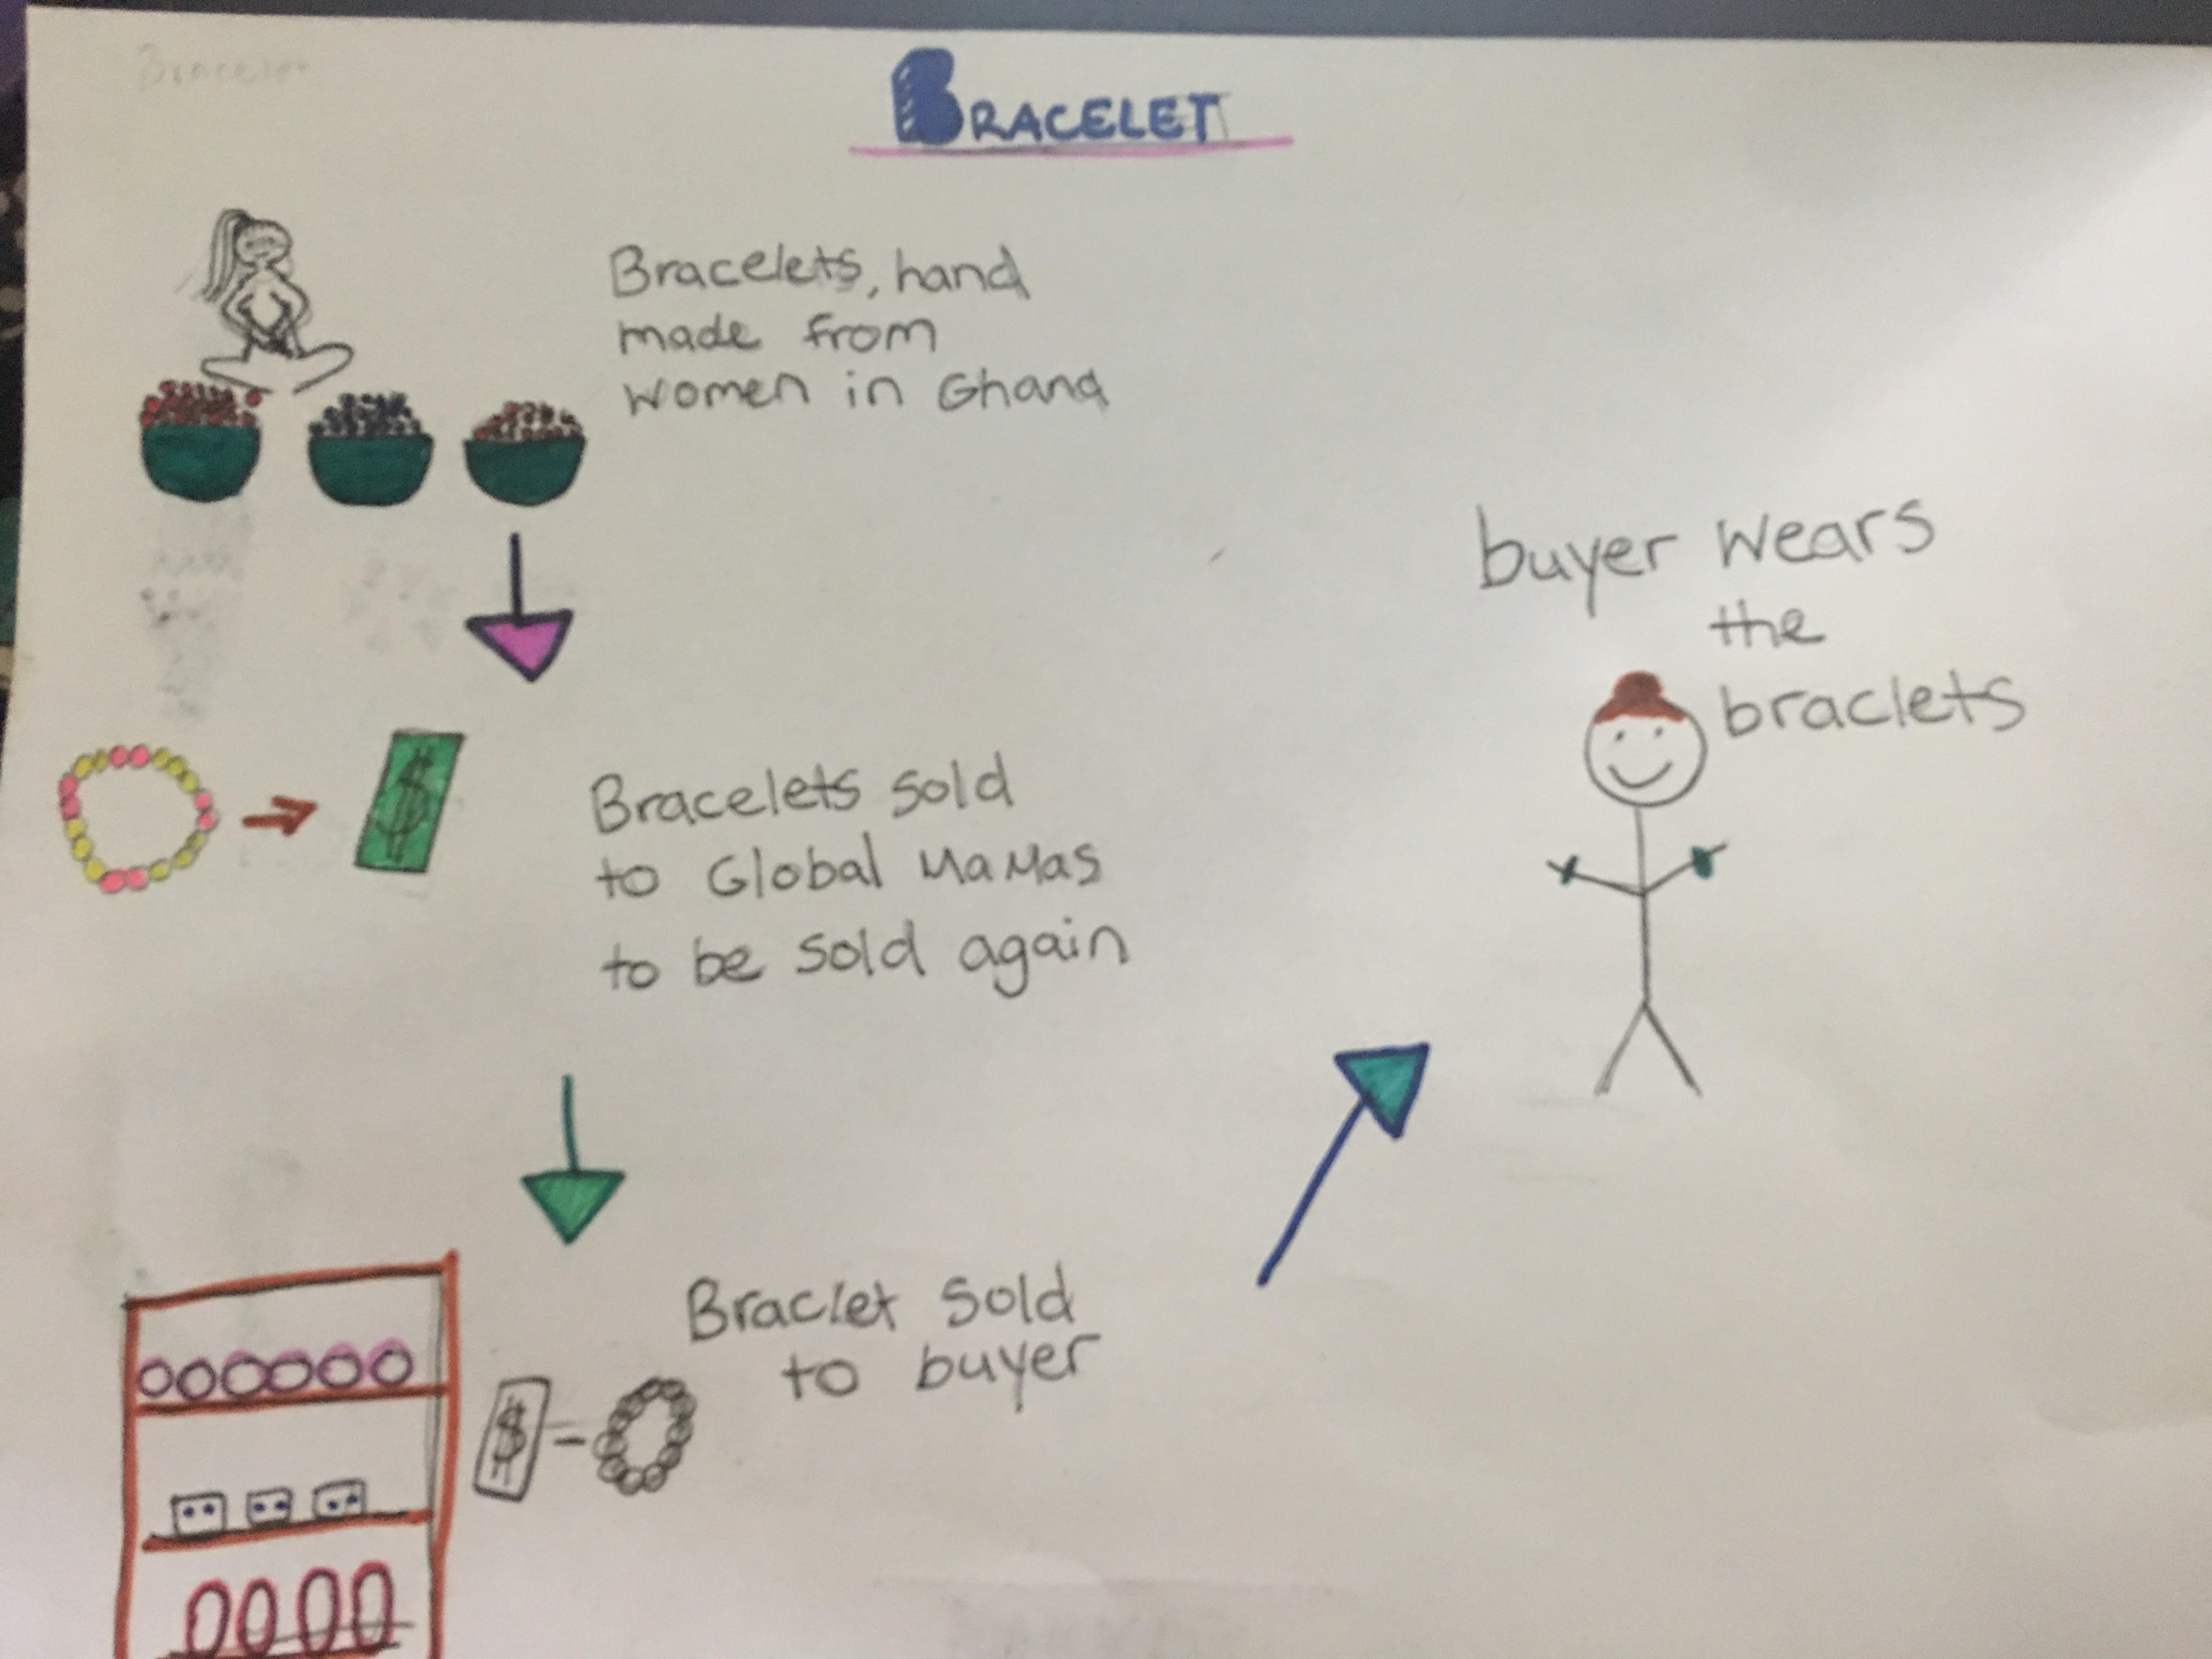 Bracelet
BRACELET
Bracelets, hand
made from
women in Ghana
Bracelets sold
to Global MaMas
to be sold again
Braclet sold
to buyer
buyer wears
the
braclets
$
$